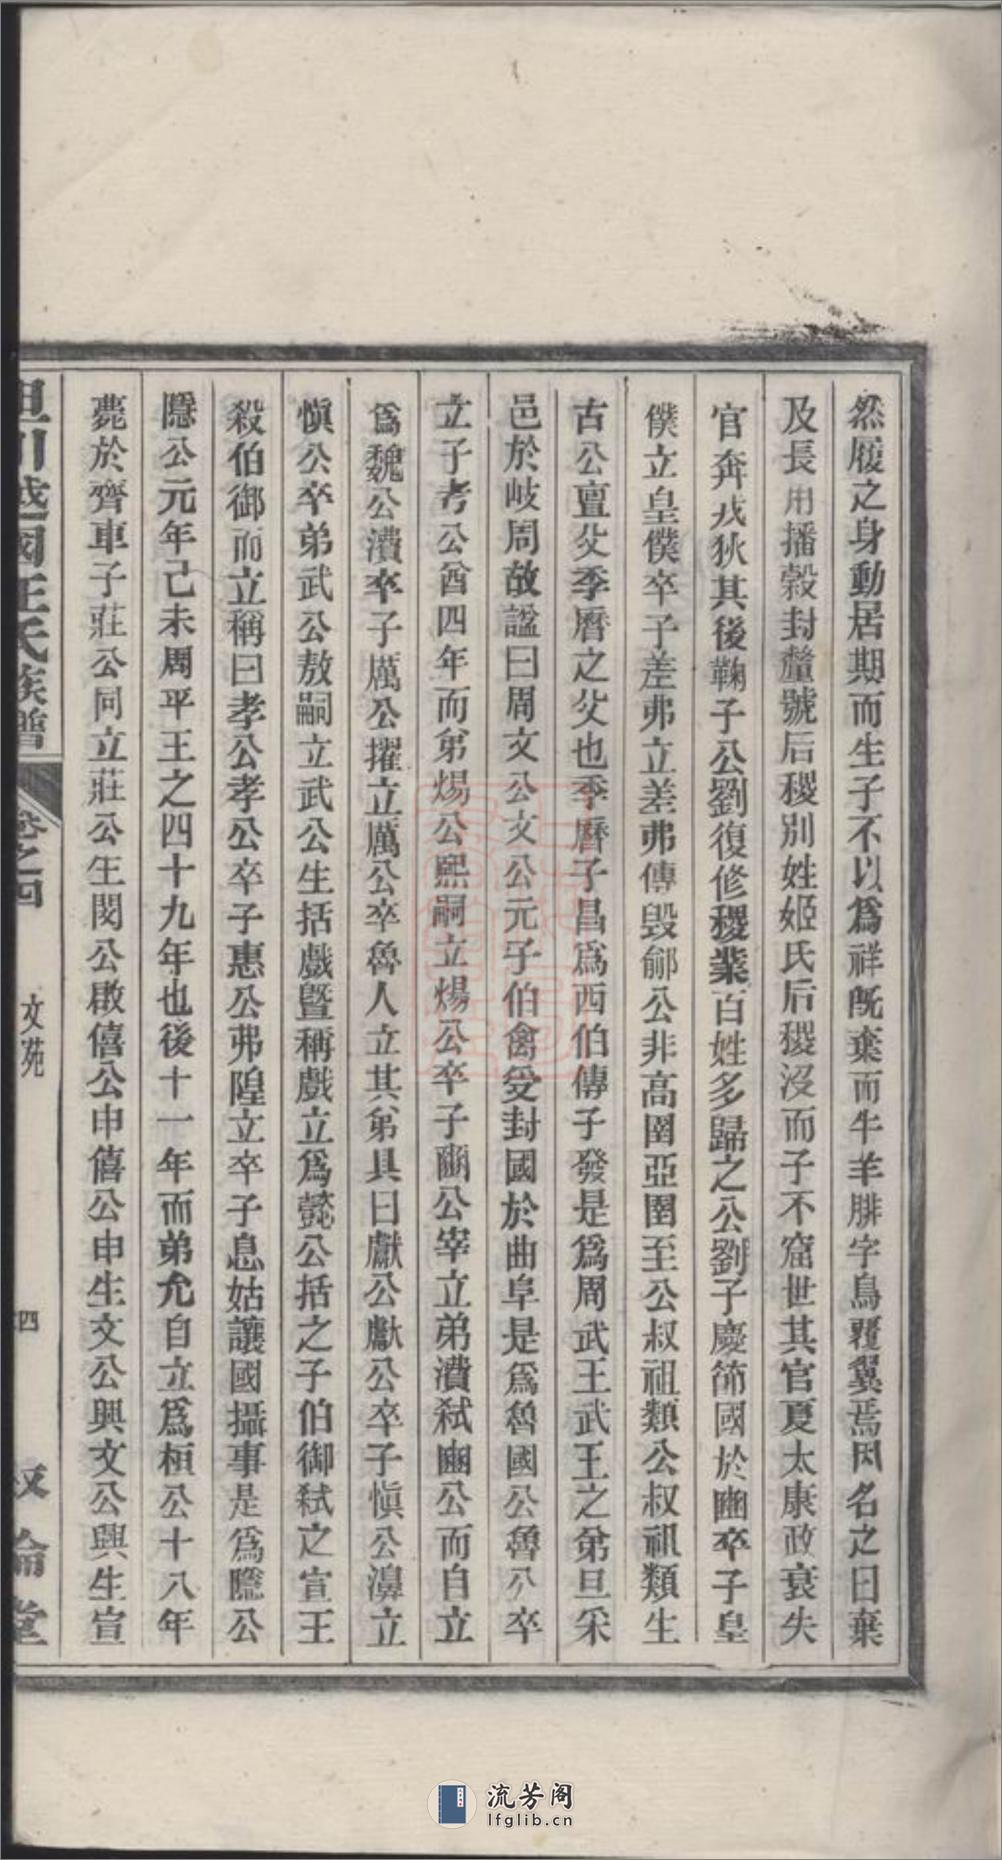 然履之身動居期而生子不以爲祥旣棄而牛羊腓字鳥覆翼焉因名之曰棄
及長用播穀封釐號后稷别姓姬氏后稷沒而子不窋世其官夏太康政衰失
官奔戎狄其後鞠子公劉復修稷業百姓多歸之公劉子慶節國於豳卒子皇
僕立皇僕卒子差弗立差弗傳毁隃公非高圉亞圉至公叔祖類公叔祖類生
古公亶父季曆之父也季曆子昌爲西伯傳子發是爲周武王武王之弟旦采
邑於岐周故謚曰周文公文公元子伯禽受封國於曲阜是爲魯國公魯公卒
立子考公酋四年而弟煬公熙嗣立煬公卒子豳公宰立弟濆弑豳公而自立
爲魏公濆卒子厲公擢立厲公卒魯人立其弟具曰獻公獻公卒子愼公濞立
愼公卒弟武公敖嗣立武公生括戲曁稱戲立爲懿公括之子伯御弑之宣王
殺伯御而立稱曰孝公孝公卒子惠公弗隍立卒子息姑讓國攝事是爲隱公
隱公元年己未周平王之四十九年也後十一年而弟允自立爲桓公十八年
薨於齊車子莊公同立莊公生閔公啟僖公申僖公申生文公興文公興生宣
國汪氏族譜
卷之四
文苑
四
倫堂
流芳阁
lfglib.cn